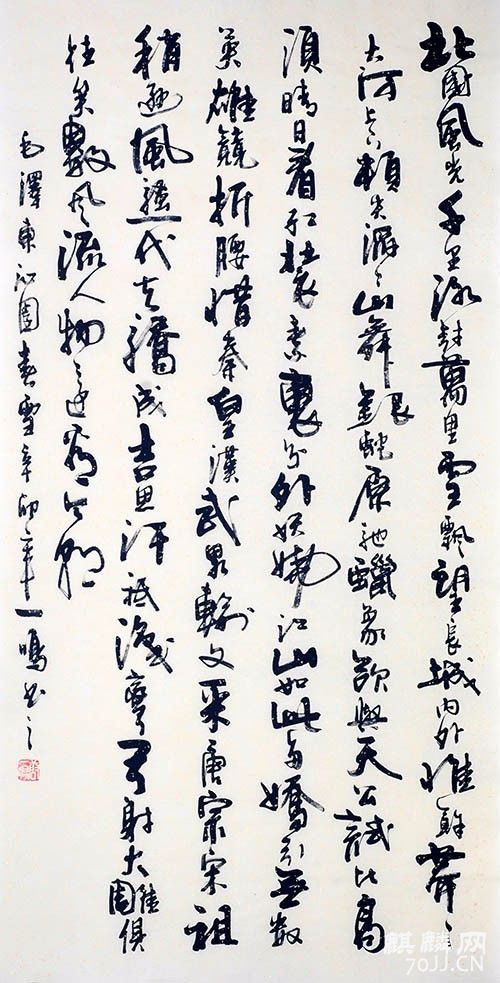 北國風光千里冰封萬里雪飄望長城內外惟餘莽々
大河上下頓失滔々山舞銀蛇原馳蠟象欲與天公試比高
須晴日看紅裝素裹分外妖嬈江山如此多嬌引無數
英雄競折腰惜秦皇漢武畧輸文采唐宗宋祖
稍遜風騷一代天驕成吉思汗祗識彎弓射大雕俱
往矣數風流人物還看今朝
毛澤東沁園春雪辛卯年一鳴書之
麒麟网
70JJ.CN